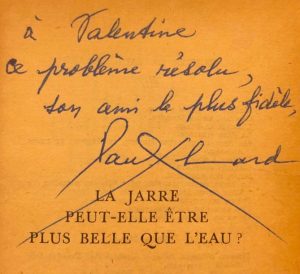 à Valentine
ce problème résolu,
son ami le plus fidèle,
Paul Eluard
LA JARRE
PEUT-ELLE ÊTRE
PLUS BELLE QUE L'EAU ?